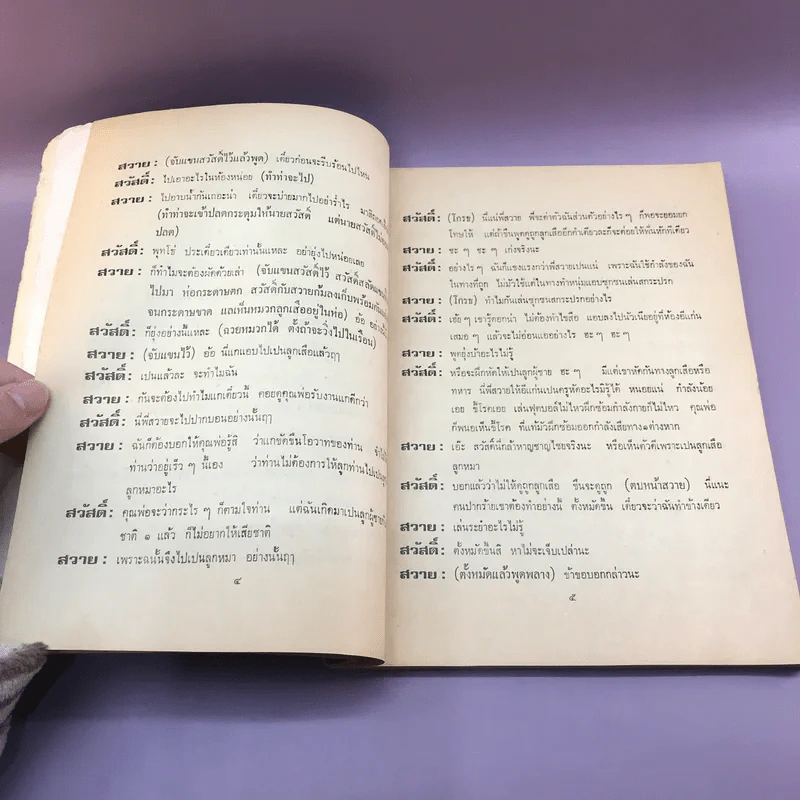 สวาย : (จับแขนสวัสดิ์ไว้แล้วพูด) เดี๋ยวก่อนจะรีบร้อนไปไหน
สวัสดิ์ : ไปเอาอะไรในห้องหน่อย (ทำท่าจะไป)
สวาย : ไปอาบน้ำกันเถอะน่า เดี๋ยวจะบ่ายมากไปอย่าร่ำไร
(ทำท่าจะเข้าปลดกระดุมให้นายสวัสดิ์ แต่นายสวัสดิ์ไม่ยอม
ปลด)
สวัสดิ์ : พุทโธ่ ประเดี๋ยวเดียวเท่านั้นแหละ อย่ายุ่งไปหน่อยเลย
สวาย : ก็ทำไมจะต้องผัดด้วยเล่า (จับแขนสวัสดิ์ไว้ สวัสดิ์สลัด
ไปมา ห่อกระดาษตก สวัสดิ์กับสวายก้มลงเก็บพร้อมกัน
จนกระดาษขาด แลเห็นหมวกลูกเสืออยู่ในห่อ) อ้อ
สวัสดิ์ : ก็ยุ่งอย่างนี้แหละ (ฉวยหมวกได้ ตั้งถ้าจะวิ่งไปในเรือน)
สวาย : (จับแขนไว้) อ้อ นี่แกแอบไปเปนลูกเสือแล้วฤๅ
สวัสดิ์ : เปนแล้วละ จะทำไมฉัน
สวาย : กันจะต้องไปทำไมแกเดี๋ยวนี้ คอยดูคุณพ่อรับงานแกดีกว่า
สวัสดิ์ : นี่พี่สวายจะไปปากบอนอย่างนั้นฤๅ
สวาย : ฉันก็ต้องบอกให้คุณพ่อรู้สิ ว่าแกขัดขืนโอวาทของท่าน
ท่านว่าอยู่เร็ว ๆ นี้เอง ว่าท่านไม่ต้องการให้ลูกท่านไปเปน
ลูกหมาอะไร
สวัสดิ์ : คุณพ่อจะว่ากระไร ๆ ก็ตามใจท่าน แต่ฉันเกิดมาเปนลูกผู้ชาย
ชาติ ๑ แล้ว ก็ไม่อยากให้เสียชาติ
สวาย : เพราะฉนั้นจึงไปเปนลูกหมา อย่างนั้นฤๅ
๔
สวัสดิ์ : (โกรธ) นี่แน่พี่สวาย พี่จะค่าตัวฉันส่วนตัวอย่างไร ๆ ก็พอจะยอมยก
โทษให้ แต่ถ้าขืนพูดดูถูกลูกเสืออีกคำเดียวละก็จะต่อยให้พี่นหักทีเดียว
สวาย : ชะ ๆ ชะ ๆ เก่งจริงนะ
สวัสดิ์ : อย่างไร ๆ ฉันก็แขงแรงกว่าพี่สวายเปนแน่ เพราะฉันใช้กำลังของฉัน
ในทางที่ถูก ไม่มัวใช้แต่ในทางทำหนุ่มแอบซุกซนเล่นสกปรก
สวาย : (โกรธ) ทำไมกันเล่นซุกซนสกปรกอย่างไร
สวัสดิ์ : เฮ้ย ๆ เขารู้ดอกน่า ไม่ต้องทำไขสือ แอบลงไปนัวเนียอยู่ที่ห้องอีแก่น
เสมอ ๆ แล้วจะไม่อ่อนแออย่างไร ฮะ ๆ
สวาย : พูดยุ่งบ้าอะไรไม่รู้
สวัสดิ์ : หรือจะฝึกหัดให้เปนลูกผู้ชาย ฮะ ๆ มีแต่เขาหัดกันทางลูกเสือหรือ
ทหาร นี่พี่สวายให้อีแก่นเปนครูหัดอะไรมิรู้ได้ หนอยแน่ กำลังน้อย
เอย ขี้โรคเอย เล่นฟุตบอล์ไม่ไหวฝึกซ้อมกำลังกายก็ไม่ไหว คุณพ่อ
ก็พนอเห็นขี้โรค ที่แท้มัวฝึกซ้อมออกกำลังเสียทางอะต่างหาก
สวาย : เอ๊ะ สวัสดิ์นี่กล้าหาญชาญไชยจริงนะ หรือเห็นตัวดีเพราะเปนลูกเสือ
ลูกหมา
สวัสดิ์ : บอกแล้วว่าไม่ให้ดูถูกลูกเสือ ขืนจะดูถูก (ตบหน้าสวาย) นี่แนะ
คนปากร้ายเขาต้องทำอย่างนี้ ตั้งหมัดขึ้น เดี๋ยวจะว่าฉันทำข้างเดียว
สวาย : เล่นระยำอะไรไม่รู้
สวัสดิ์ : ตั้งหมัดขึ้นสิ หาไม่จะเจ็บเปล่านะ
สวาย : (ตั้งหมัดแล้วพูดพลาง) ข้าขอบอกกล่าวนะ
๕